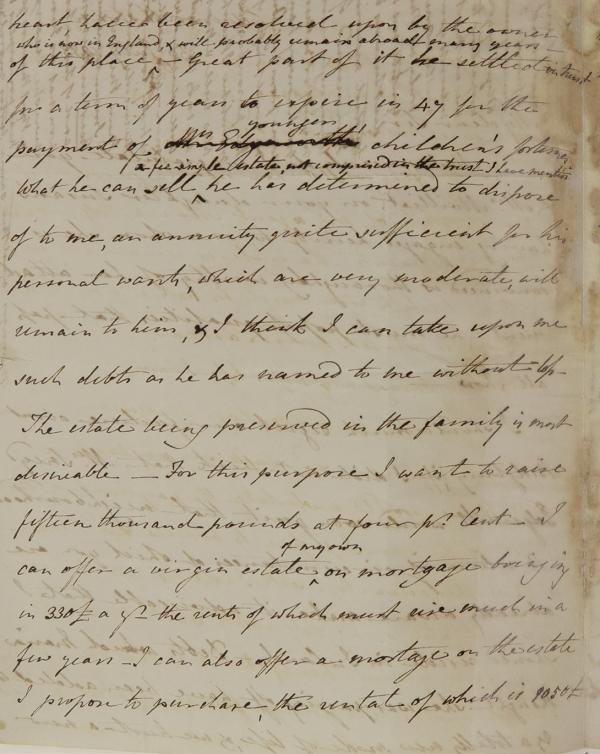 heart have been resolved upon by the owner
who is now in England, & will probably remain abroad many years -
of this place - Great part of it is settled in trust
for a term of years to expire in 47 for the
youngers
payment of Mrs Edgeworth's children's fortunes
a fee simple estate, not comprised in the trust I have mention
What he can sell he has determined to dispose
of to me, an annuity quite sufficient for his
personal wants, which are very moderate, will
remain to him, & I think I can take upon me
such debts as he has named to me without
The estate being preserved in the family is most
desireable — For this purpose I want to raise
fifteen thousand pounds at four pr Cent - I
of my own
can offer a virgin estate on mortgage bringing
in 330£ a yr the rents of which must rise much in a
few years - I can also offer a mortage on the estate
I propose to purchase, the rental of which is 1050£